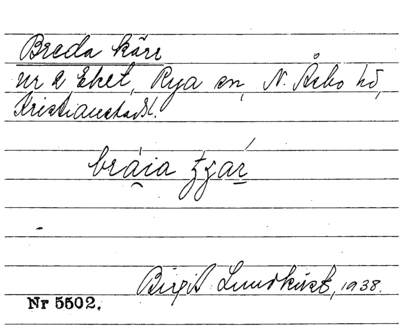 Breda kärr
nr 2 Eket, Rya sn, N. Åsbo hd,
Kristianstads l.
bráia
Birgit Lundkvist, 1938.
Nr 5502.